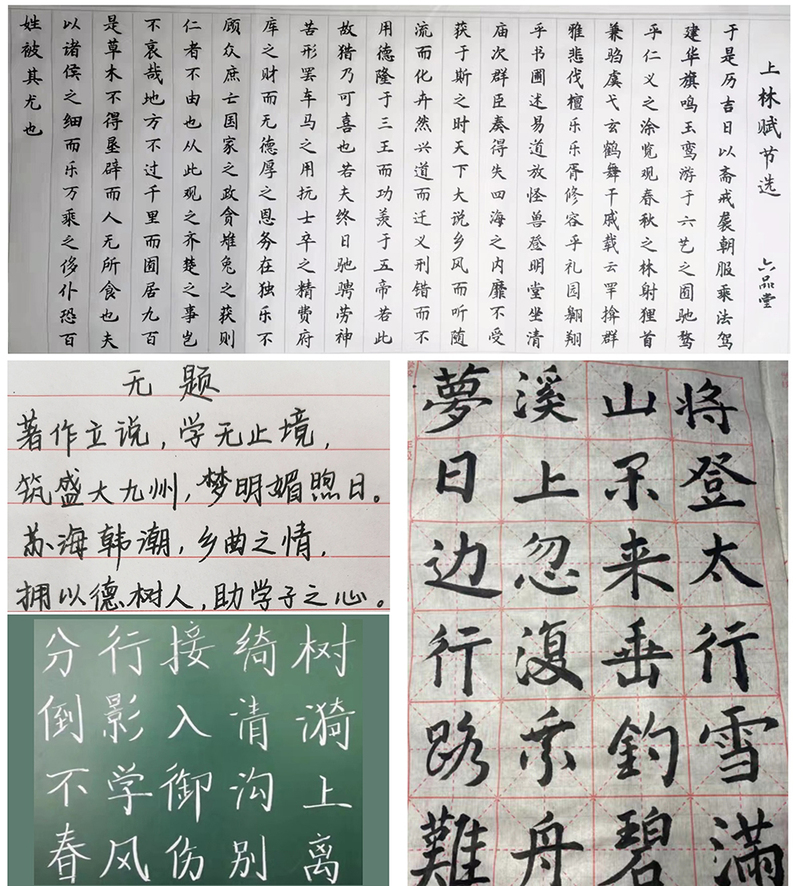 上林赋节选 六品堂
于是历吉日以斋戒袭朝服乘法驾
建华旗鸣玉鸾游于六艺之囿驰骛
乎仁义之涂览观春秋之林射狸首
兼驺虞弋玄鹤舞干戚载云罕揜群
雅悲伐檀乐乐胥修容乎礼园翱翔
乎书圃述易道放怪兽登明堂坐清
庙次群臣奏得失四海之内靡不受
获于斯之时天下大说乡风而听随
流而化卉然兴道而迁义刑错而不
用德隆于三王而功羡于五帝若此
故猎乃可喜也若夫终日驰骋劳神
苦形罢车马之用抗士卒之精费府
库之财而无德厚之恩务在独乐不
顾众庶亡国家之政贪雉兔之获则
仁者不由也从此观之齐楚之事岂
不哀哉地方不过千里而囿居九百
是草木不得垦辟而人无所食也夫
以诸侯之细而乐万乘之侈仆恐百
姓被其尤也
无题
著作立说，学无止境，
筑盛大九州，梦明媚煦日。
苏海韩潮，乡曲之情，
拥以德树人，助学子之心。
分行接绮树
倒影入清漪
不学御沟上
春风伤别离
将登太行雪满
山闲来垂钓碧
溪上忽復乘舟
夢日边行路難